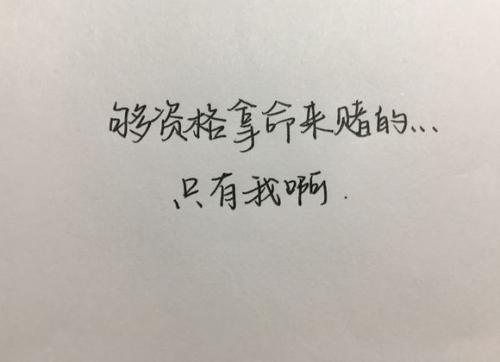 够资格拿命来赌的...
只有我啊.